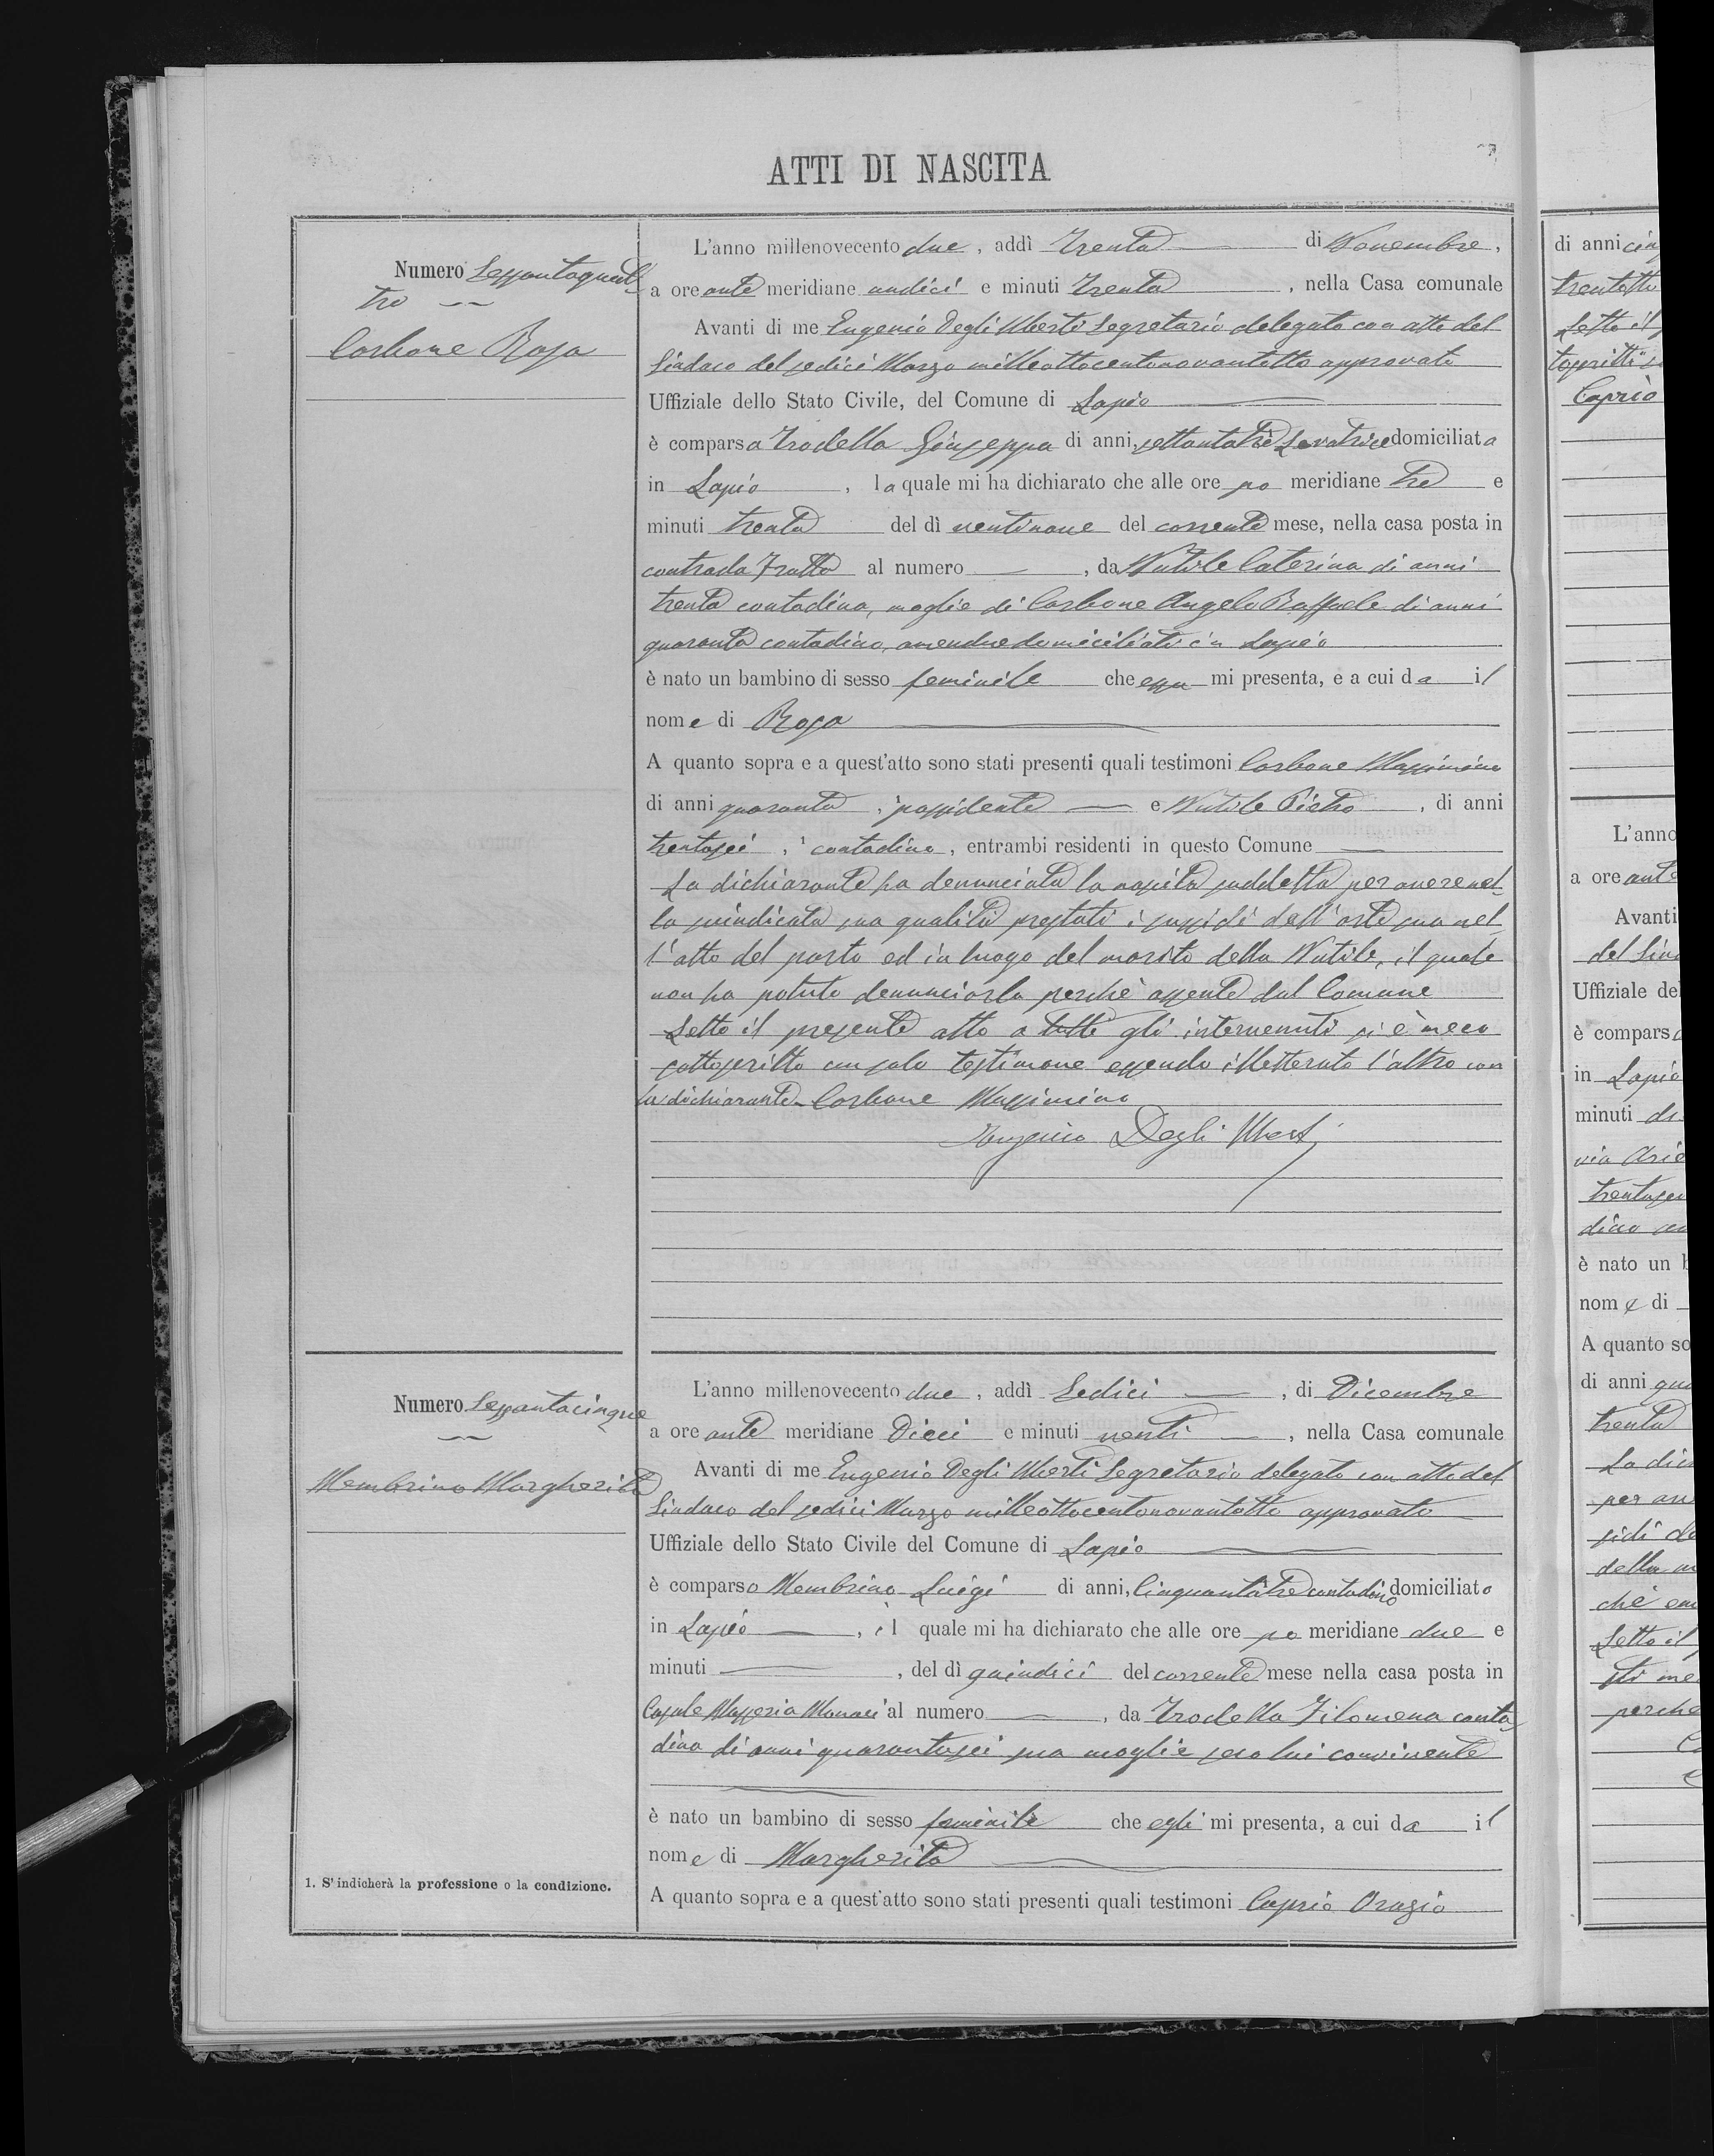 ATTI DI NASCITA
Numero Sessantaquat-
tro
Carbone Rosa
L'anno millenovecento due, addì trenta di Novembre,
a ore ante meridiane undici e minuti trenta, nella Casa comunale
Avanti di me Eugenio Degli Uberti Segretario delegato con atto del
Sindaco del sedici Marzo milleottocentonovantotto approvato
Uffiziale dello Stato Civile, del Comune di Lapio
è comparsa Trodella Giuseppa di anni, settantatrè Levatrice domiciliata
in Lapio, la quale mi ha dichiarato che alle ore po meridiane tre e
minuti trenta del dì ventinove del corrente mese, nella casa posta in
contrada Fratta al numero , da Nutile Caterina di anni
trenta contadina, moglie di Carbone Angelo Raffaele di anni
quaranta contadino, amendue domiciliati in Lapio
è nato un bambino di sesso feminile che essa mi presenta, e a cui da il
nome di Rosa
A quanto sopra e a quest'atto sono stati presenti quali testimoni Carbone Massimino
di anni quaranta, possidente e Nutile Pietro, di anni
trentasei, contadino, entrambi residenti in questo Comune
La dichiarante ha denunciata la nascita suddetta per avere nel-
la suindicata sua qualità prestati i sussidi dell'arte sua nel-
l'atto del parto ed in luogo del marito della Nutile, il quale
non ha potuto denunciarla perchè assente dal Comune
Letto il presente atto a tutti gli intervenuti si è meco
sottoscritto un solo testimone essendo illetterato l'altro con
la dichiarante - Carbone Massimino
Eugenio Degli Uberti
Numero Sessantacinque
Membrino Margherita
L'anno millenovecento due, addì Sedici, di Dicembre
a ore ante meridiane Dieci e minuti venti, nella Casa comunale
Avanti di me Eugenio Degli Uberti Segretario delegato con atto del
Sindaco del sedici Marzo milleottocentonovantotto approvato
Uffiziale dello Stato Civile del Comune di Lapio
è comparso Membrino Luigi di anni, Cinquantatre contadino domiciliato
in Lapio, il quale mi ha dichiarato che alle ore po meridiane due e
minuti , del dì quindici del corrente mese nella casa posta in
Casale Masseria Monaci al numero , da Trodella Filomena conta-
dina di anni quarantasei sua moglie seco lui convivente
è nato un bambino di sesso feminile che egli mi presenta, a cui da il
nome di Margherita
1. S'indicherà la professione o la condizione.
A quanto sopra e a quest'atto sono stati presenti quali testimoni Caprio Orazio
di anni
trentotto
Letto il
Caprio
L'anno
a ore ante
Avanti
del Sin
Uffiziale del
è compars
in Lapio
minuti
via
è nato un b
nome di
A quanto so
di anni
trenta
La dic
della
Letto il
perche